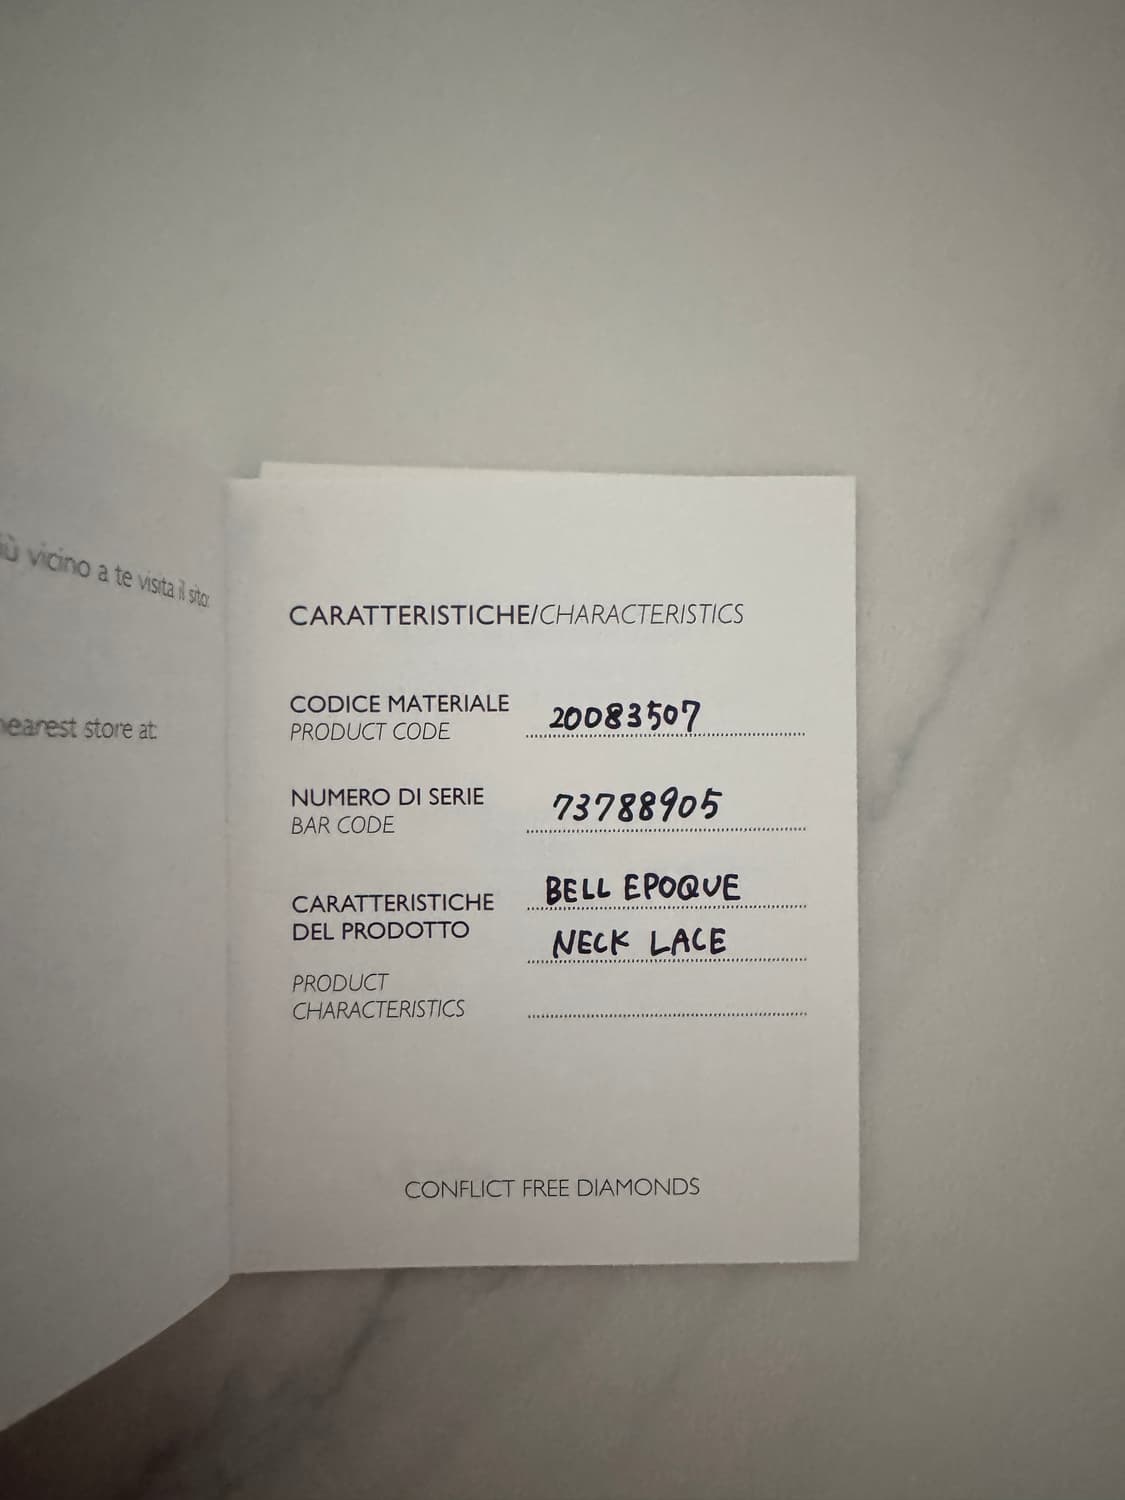 vicino a te visita il sito:
nearest store at:
CARATTERISTICHE/CHARACTERISTICS
CODICE MATERIALE
PRODUCT CODE
20083507
NUMERO DI SERIE
BAR CODE
73788905
CARATTERISTICHE
DEL PRODOTTO
PRODUCT
CHARACTERISTICS
BELL EPOQUE
NECK LACE
CONFLICT FREE DIAMONDS